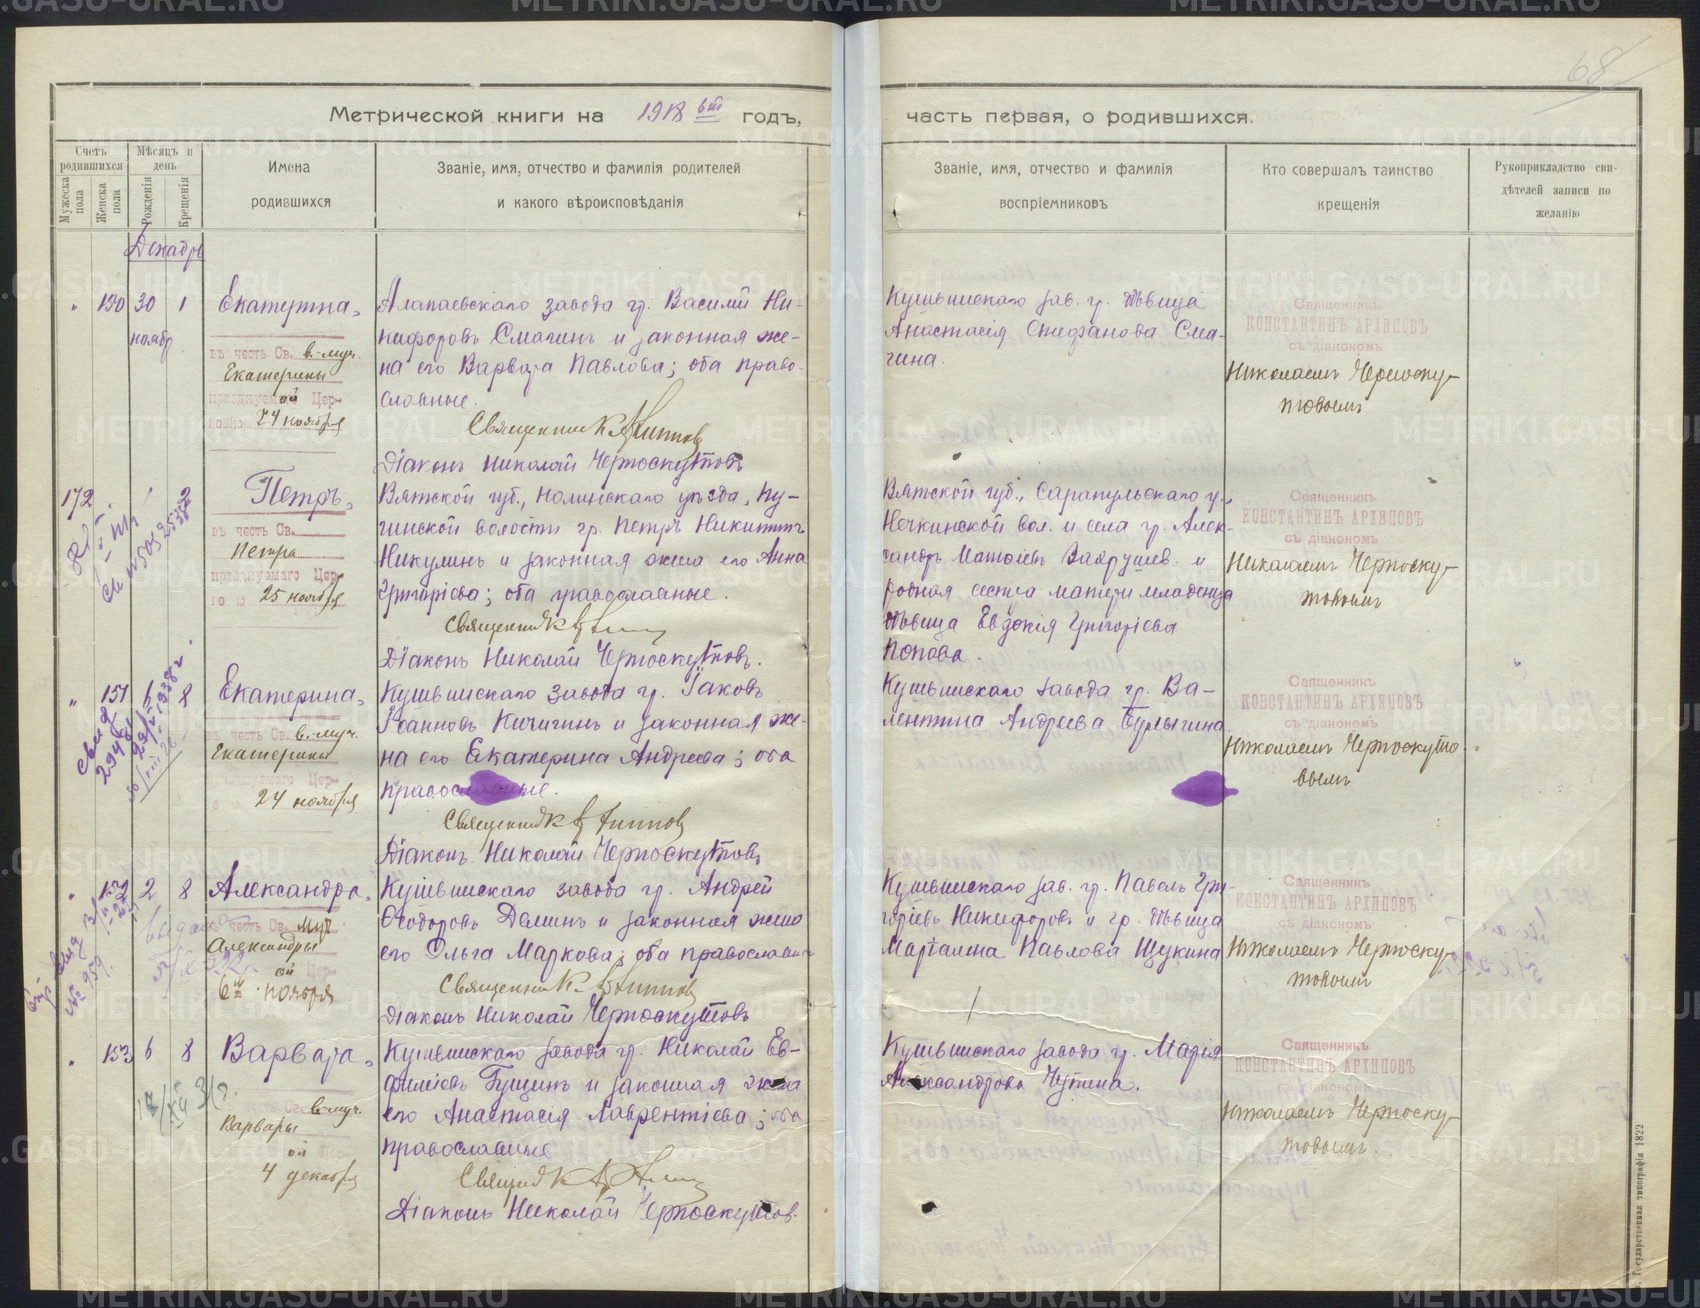 Метрической книги на 1918 годъ,
часть первая, о родившихся.
68
Счетъ родившихся
Мужеска пола
Женска пола
Мѣсяцъ и день
Рожденія
Крещенія
Имена
родившихся
Званіе, имя, отчество и фамилія родителей
и какого вѣроисповѣданія
Званіе, имя, отчество и фамилія
воспріемниковъ
Кто совершалъ таинство
крещенія
Рукоприкладство сви-
дѣтелей записи по
желанію
Декабрь
" 150 30 1
ноябр
Екатерина,
въ честь Св. в.-муч.
Екатерины
празднуемой Цер-
24 ноября
Алапаевскаго завода гр. Василій Ни-
кифоровъ Смагинъ и законная же-
на его Варвара Павлова; оба право-
славные.
Священник К Архипов
Діаконъ Николай Черноскутовъ
Кушвинскаго зав. гр. дѣвица
Анастасія Епифанова Сма-
гина.
Священникъ
КОНСТАНТИНЪ АРХИПОВЪ
съ діакономъ
Николаемъ Черноску-
товымъ
172 2
Петръ,
въ честь Св.
Петра
празднуемаго Цер-
25 ноября
Вятской губ., Нолинскаго уѣзда, Ку-
гинской волости гр. Петръ Никитинъ
Никулинъ и законная жена его Анна
Григоріева; оба православные.
Священник К Архипов
Діаконъ Николай Черноскутовъ.
Вятской губ., Сарапульскаго у.,
Нечкинской вол. и села гр. Алек-
сандръ Матвіевъ Вахрушев. и
родная сестра матери младенца
дѣвица Евдокія Григоріева
Попова.
Священникъ
КОНСТАНТИНЪ АРХИПОВЪ
съ діакономъ
Николаемъ Черноску-
товымъ
" 151 6 8
Екатерина,
въ честь Св. в.-муч.
Екатерины
24 ноября
Кушвинскаго завода гр. Іаковъ
Іоанновъ Кичигинъ и законная же-
на его Екатерина Андреева; оба
православные.
Священник К Архипов
Діаконъ Николай Черноскутовъ
Кушвинскаго завода гр. Ва-
лентина Андреева Булыгина
Священникъ
КОНСТАНТИНЪ АРХИПОВЪ
съ діакономъ
Николаемъ Черноскуто-
вымъ
" 152 2 8
Александра,
честь Св. муч
Александры
ой Цер-
6 ноября
Кушвинскаго завода гр. Андрей
Ѳеодоровъ Деминъ и законная жена
его Ольга Маркова; оба православн
Священник К. Архипов
Діаконъ Николай Черноскутовъ
Кушвинскаго зав. гр. Павелъ Гри-
горіевъ Никифоровъ и гр. дѣвица
Маргалина Павлова Щукина
Священникъ
КОНСТАНТИНЪ АРХИПОВЪ
съ діакономъ
Николаемъ Черноску-
товымъ
" 153 6 8
Варвара,
в.-муч.
Варвары
ой
4 декабря
Кушвинскаго завода гр. Николай Ев-
фиміевъ Гущинъ и законная жена
его Анастасія Лаврентіева; оба
православные
Священ К Архипов
Діаконъ Николай Черноскутов.
Кушвинскаго завода гр. Марія
Александрова Чупина.
Священникъ
КОНСТАНТИНЪ АРХИПОВЪ
съ діакономъ
Николаемъ Черноску-
товымъ.
Государственная типографія 1822
METRIKI.GASO-URAL.RU